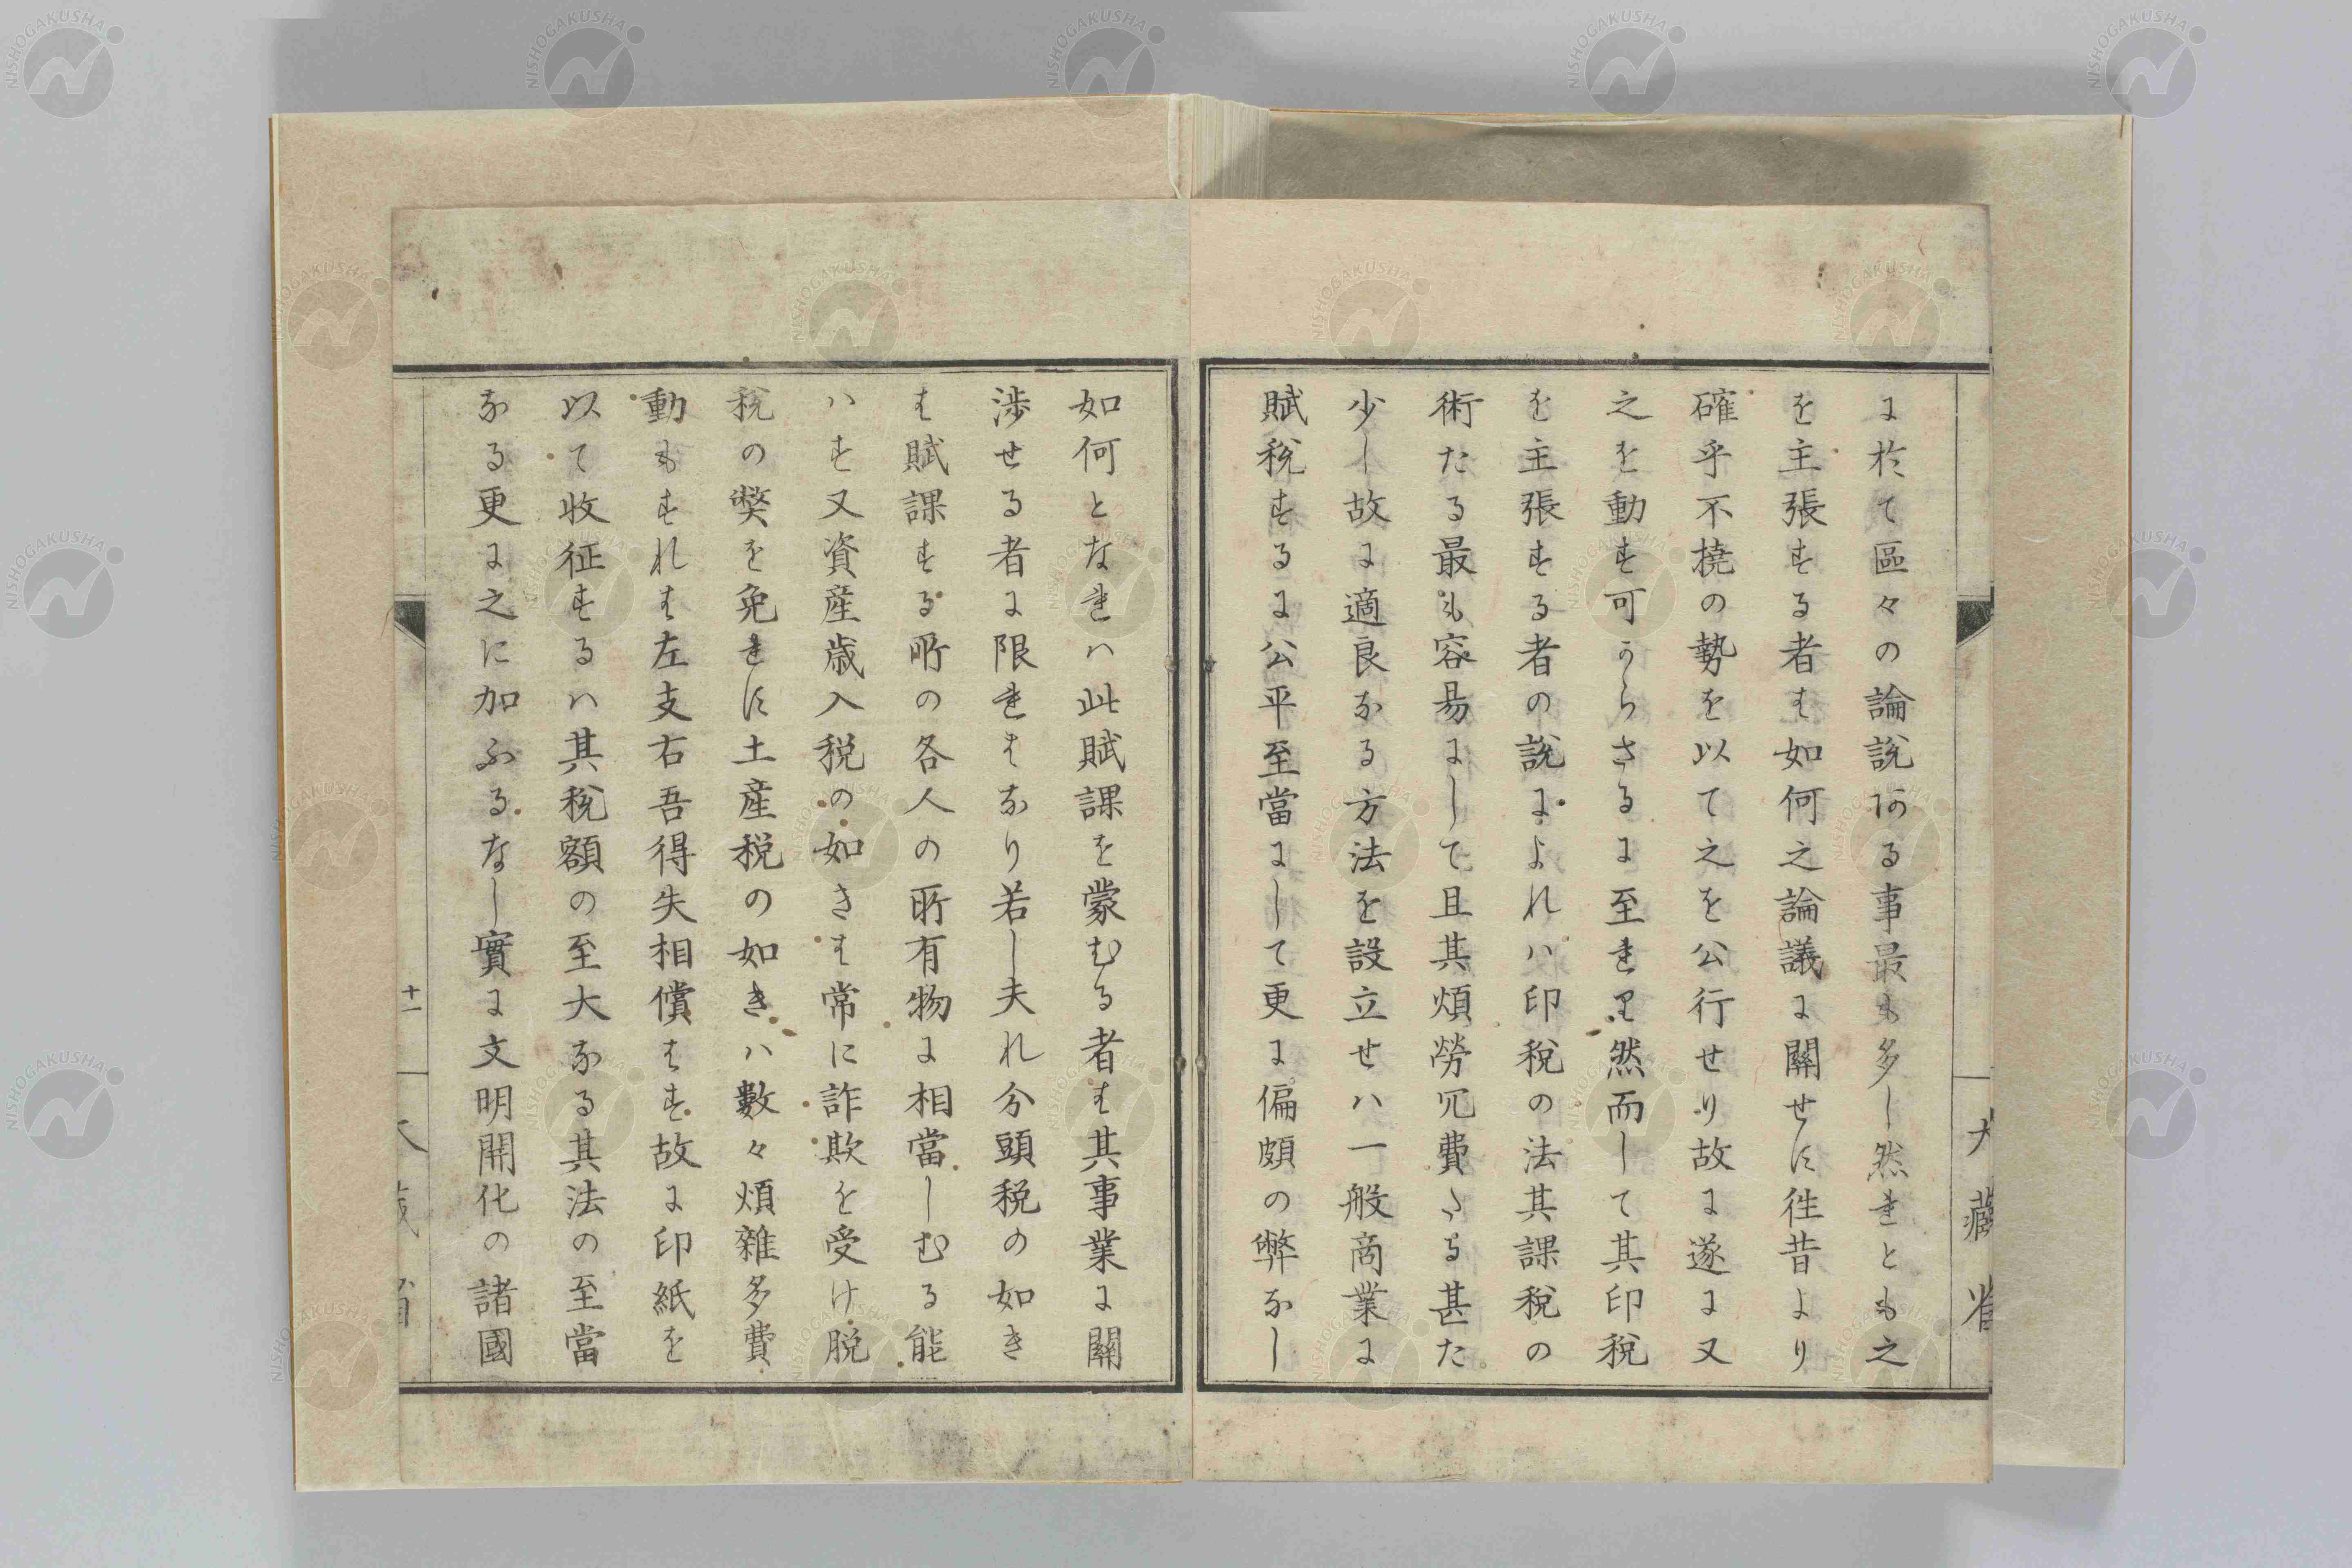 に於て區々の論說ある事最も多し然れとも之
を主張する者は如何之論議に關せす往昔より
確乎不撓の勢を以て之を公行せり故に遂に又
之を動す可からさるに至れり然而して其印稅
を主張する者の說によれハ印稅の法其課稅の
術たる最も容易にして且其煩勞冗費たる甚た
少し故に適良なる方法を設立せハ一般商業に
賦稅するに公平至當にして更に偏頗の弊なし
如何となれハ此賦課を蒙むる者は其事業に關
涉せる者に限れはなり若し夫れ分頭税の如き
は賦課する所の各人の所有物に相當しむる能
ハす又資産歳入税の如きは常に詐欺を受け脱
税の弊を免れす土産税の如きハ數々煩雜多費
動もすれは左支右吾得失相償はす故に印紙を
以て收征するハ其稅額の至大なる其法の至當
なる更に之に加ふるなし實に文明開化の諸國
十一
大藏省
NISHOGAKUSHA